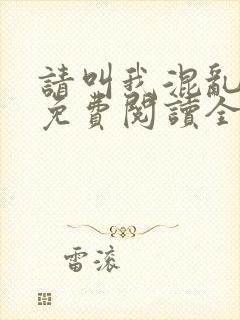 請叫我混亂
免費閱讀全
雷滚